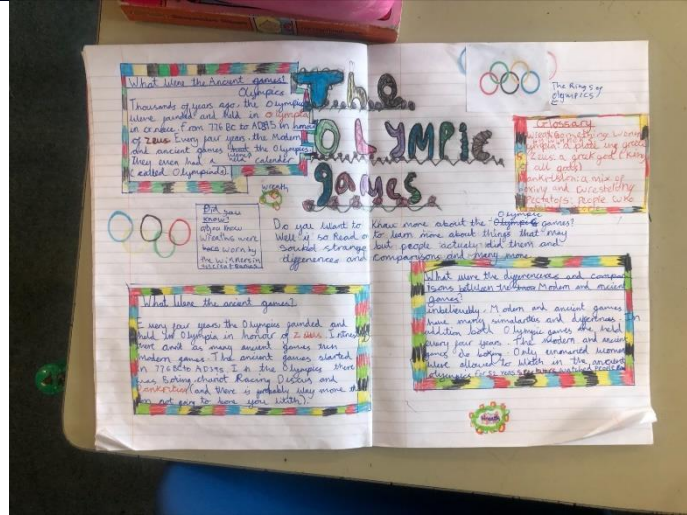 What Were the Ancient games?
Olympics
Thousands of years ago, the Olympics
Were founded and held in Olympia
in Greece. From 776 BC to AD395 in honour
of Zeus Every four years, the Modern
and ancient games the Olympics
They even had a calender
(called Olympiads).
The
OLYMPIC
games
The Rings of
Olympics
Glossary
a greek god (King
all gods)
a mix of
and Wrestling
People who
Wreath
Did you
know?
Wreaths were
worn by
the winners in
ancient Games
Do you Want to Know more about the Olympic Games?
Well if so Read on to learn more about things that may
sound strange but people actually did them and
differences and comparisons and many more
What Were the ancient games?
Every four years the Olympics founded and
held in Olympia in honour of Zeus.
and as many ancient games then
modern games. The ancient games started
in 776BC to AD395. In the Olympics there
was Boxing chariot Racing Discus and
(and there is probably way more
going to bore you With).
What Were the differences and Compa
risons between the Modern and ancient
games?
Unbelievably, Modern and ancient games
have many similarities and differences. In
addition both Olympic games are held
every four years. The modern and ancient
games do boxing. Only unmarried women
Were allowed to Watch in the ancient
Olympics
Wreath